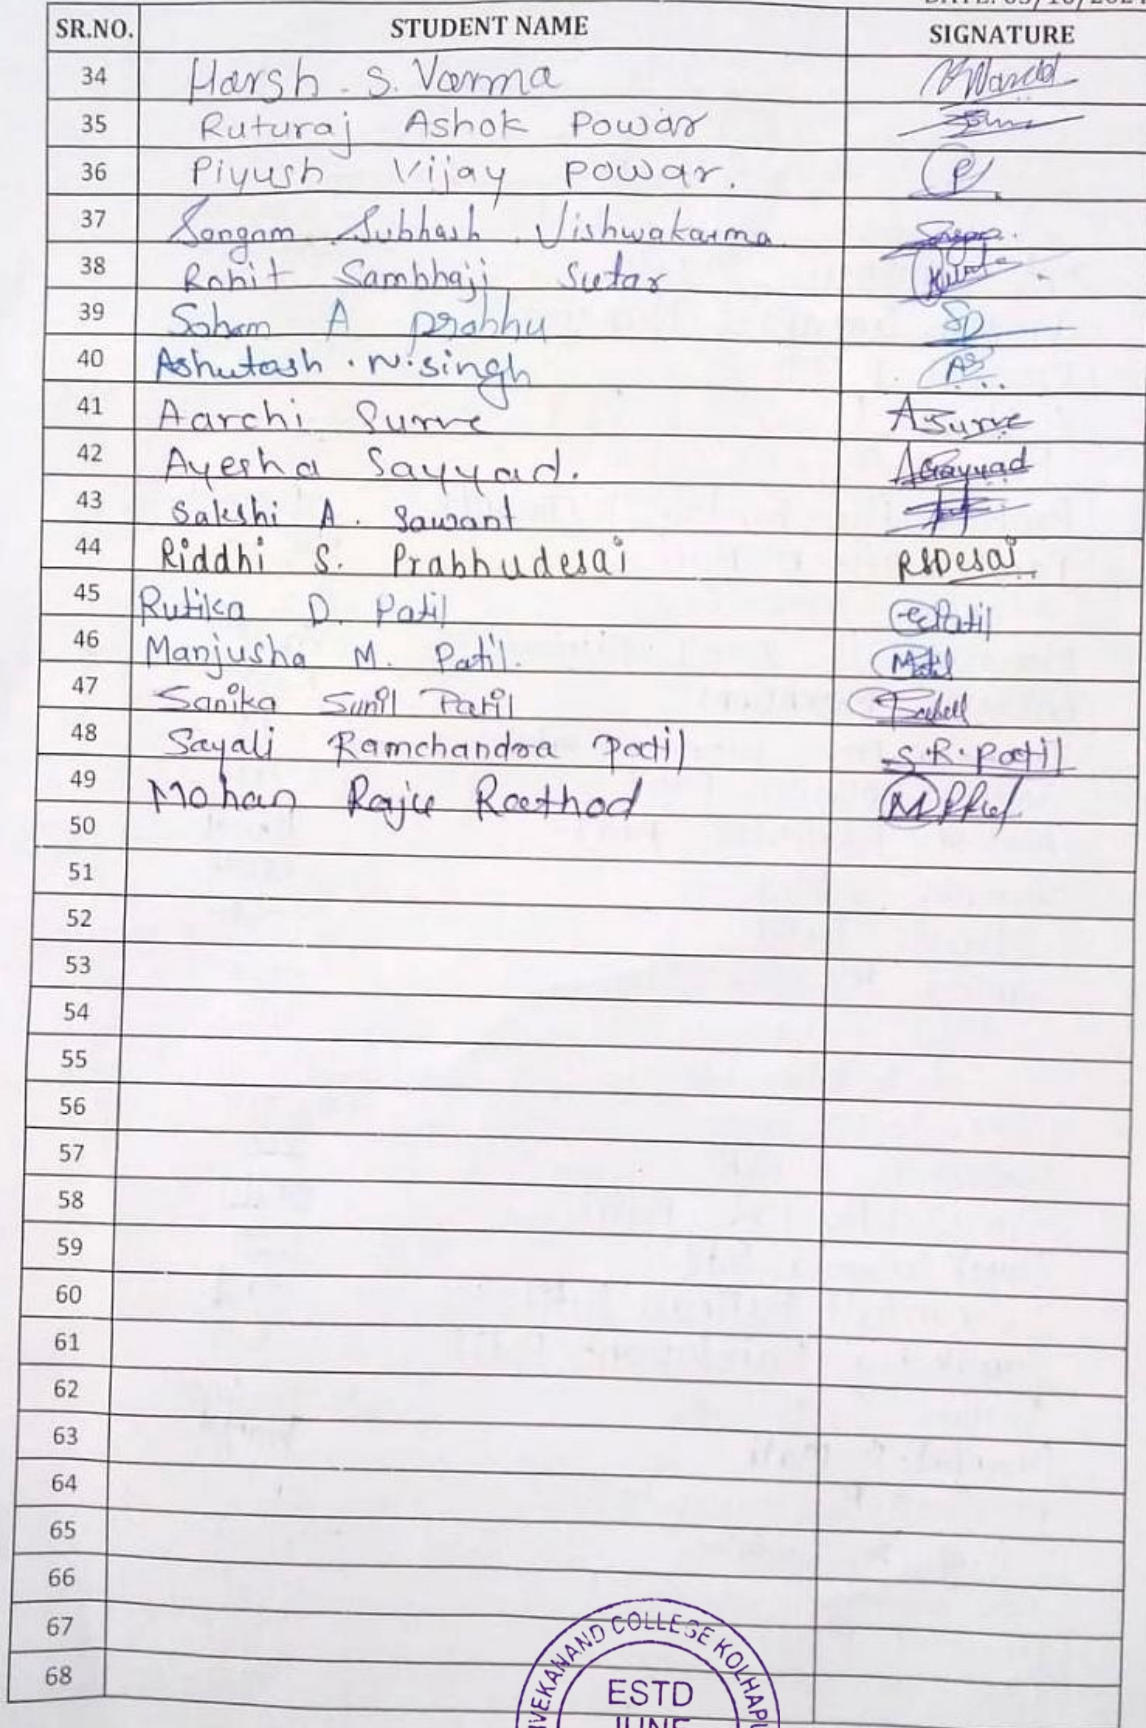 SR.NO. STUDENT NAME SIGNATURE
34 Harsh . S. Varma
35 Ruturaj Ashok Powar
36 Piyush Vijay Powar. P
37 Sangam Subhash Vishwakarma
38 Rohit Sambhaji Sutar
39 Soham A prabhu SP
40 Ashutash . N. singh AS
41 Aarchi Surve ASurve
42 Ayesha Sayyad. ASayyad
43 Sakshi A. Sawant
44 Riddhi S. Prabhudesai RSDesai
45 Rutika D. Patil Patil
46 Manjusha M. Patil.
47 Sanika Sunil Patil
48 Sayali Ramchandra Patil S.R.Patil
49 Mohan Raju Rathod
50
51
52
53
54
55
56
57
58
59
60
61
62
63
64
65
66
67
68
COLLEGE
ESTD
JUNE